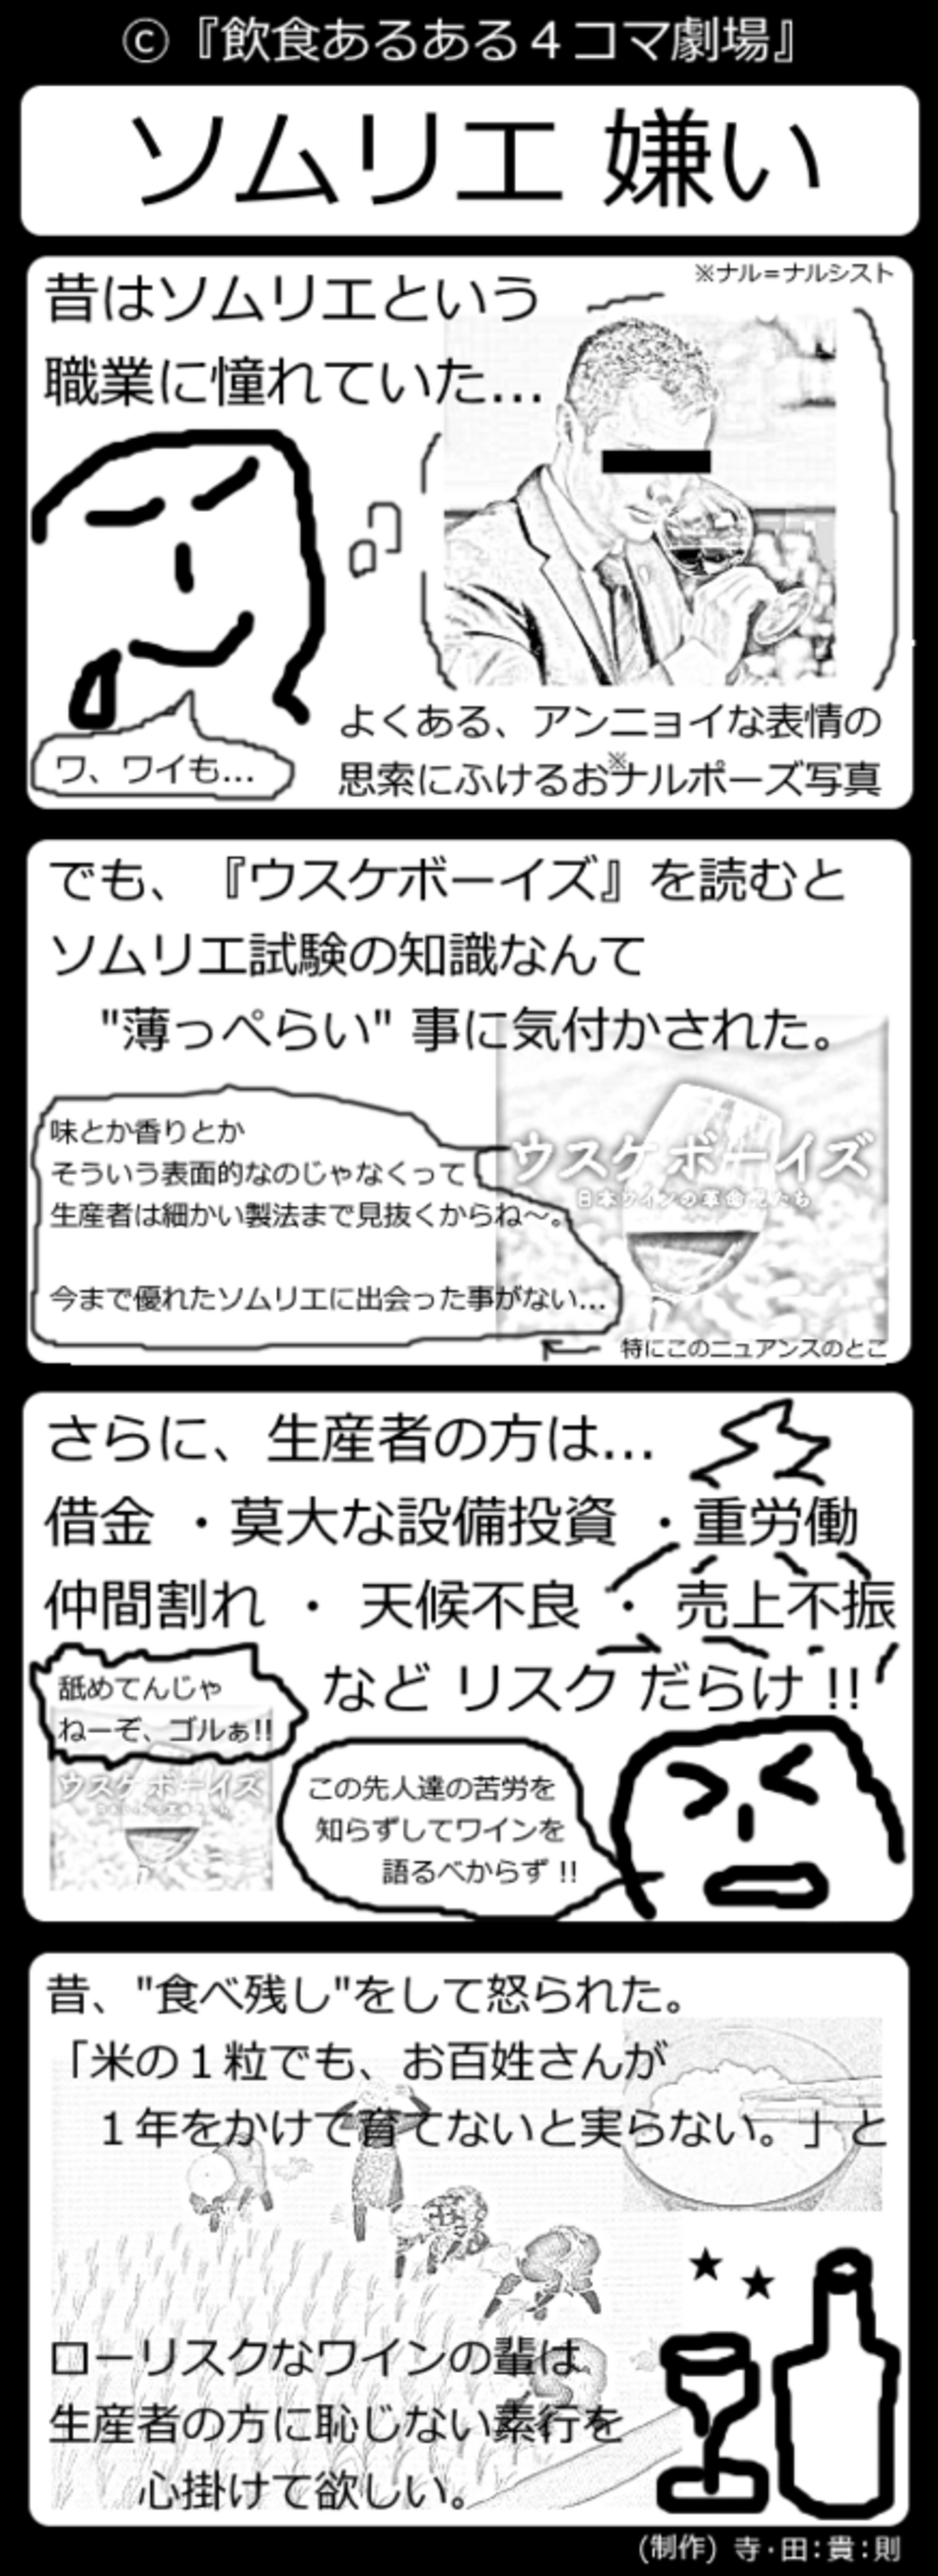 ©『飲食あるある４コマ劇場』
ソムリエ 嫌い
※ナル＝ナルシスト
昔はソムリエという
職業に憧れていた…
ワ、ワイも…
よくある、アンニョイな表情の
※
思索にふけるおナルポーズ写真
でも、『ウスケボーイズ』を読むと
ソムリエ試験の知識なんて
"薄っぺらい" 事に気付かされた。
味とか香りとか
そういう表面的なのじゃなくって
生産者は細かい製法まで見抜くからね〜。
今まで優れたソムリエに出会った事がない…
ウスケボーイズ
日本ワインの革命児たち
特にこのニュアンスのとこ
さらに、生産者の方は…
借金 ・莫大な設備投資 ・重労働
仲間割れ ・ 天候不良 ・ 売上不振
など リスク だらけ !!
舐めてんじゃ
ねーぞ、ゴルぁ!!
ウスケボーイズ
この先人達の苦労を
知らずしてワインを
語るべからず !!
昔、"食べ残し"をして怒られた。
「米の１粒でも、お百姓さんが
１年をかけて育てないと実らない。」と
ローリスクなワインの輩は
生産者の方に恥じない素行を
心掛けて欲しい。
(制作) 寺・田：貴：則